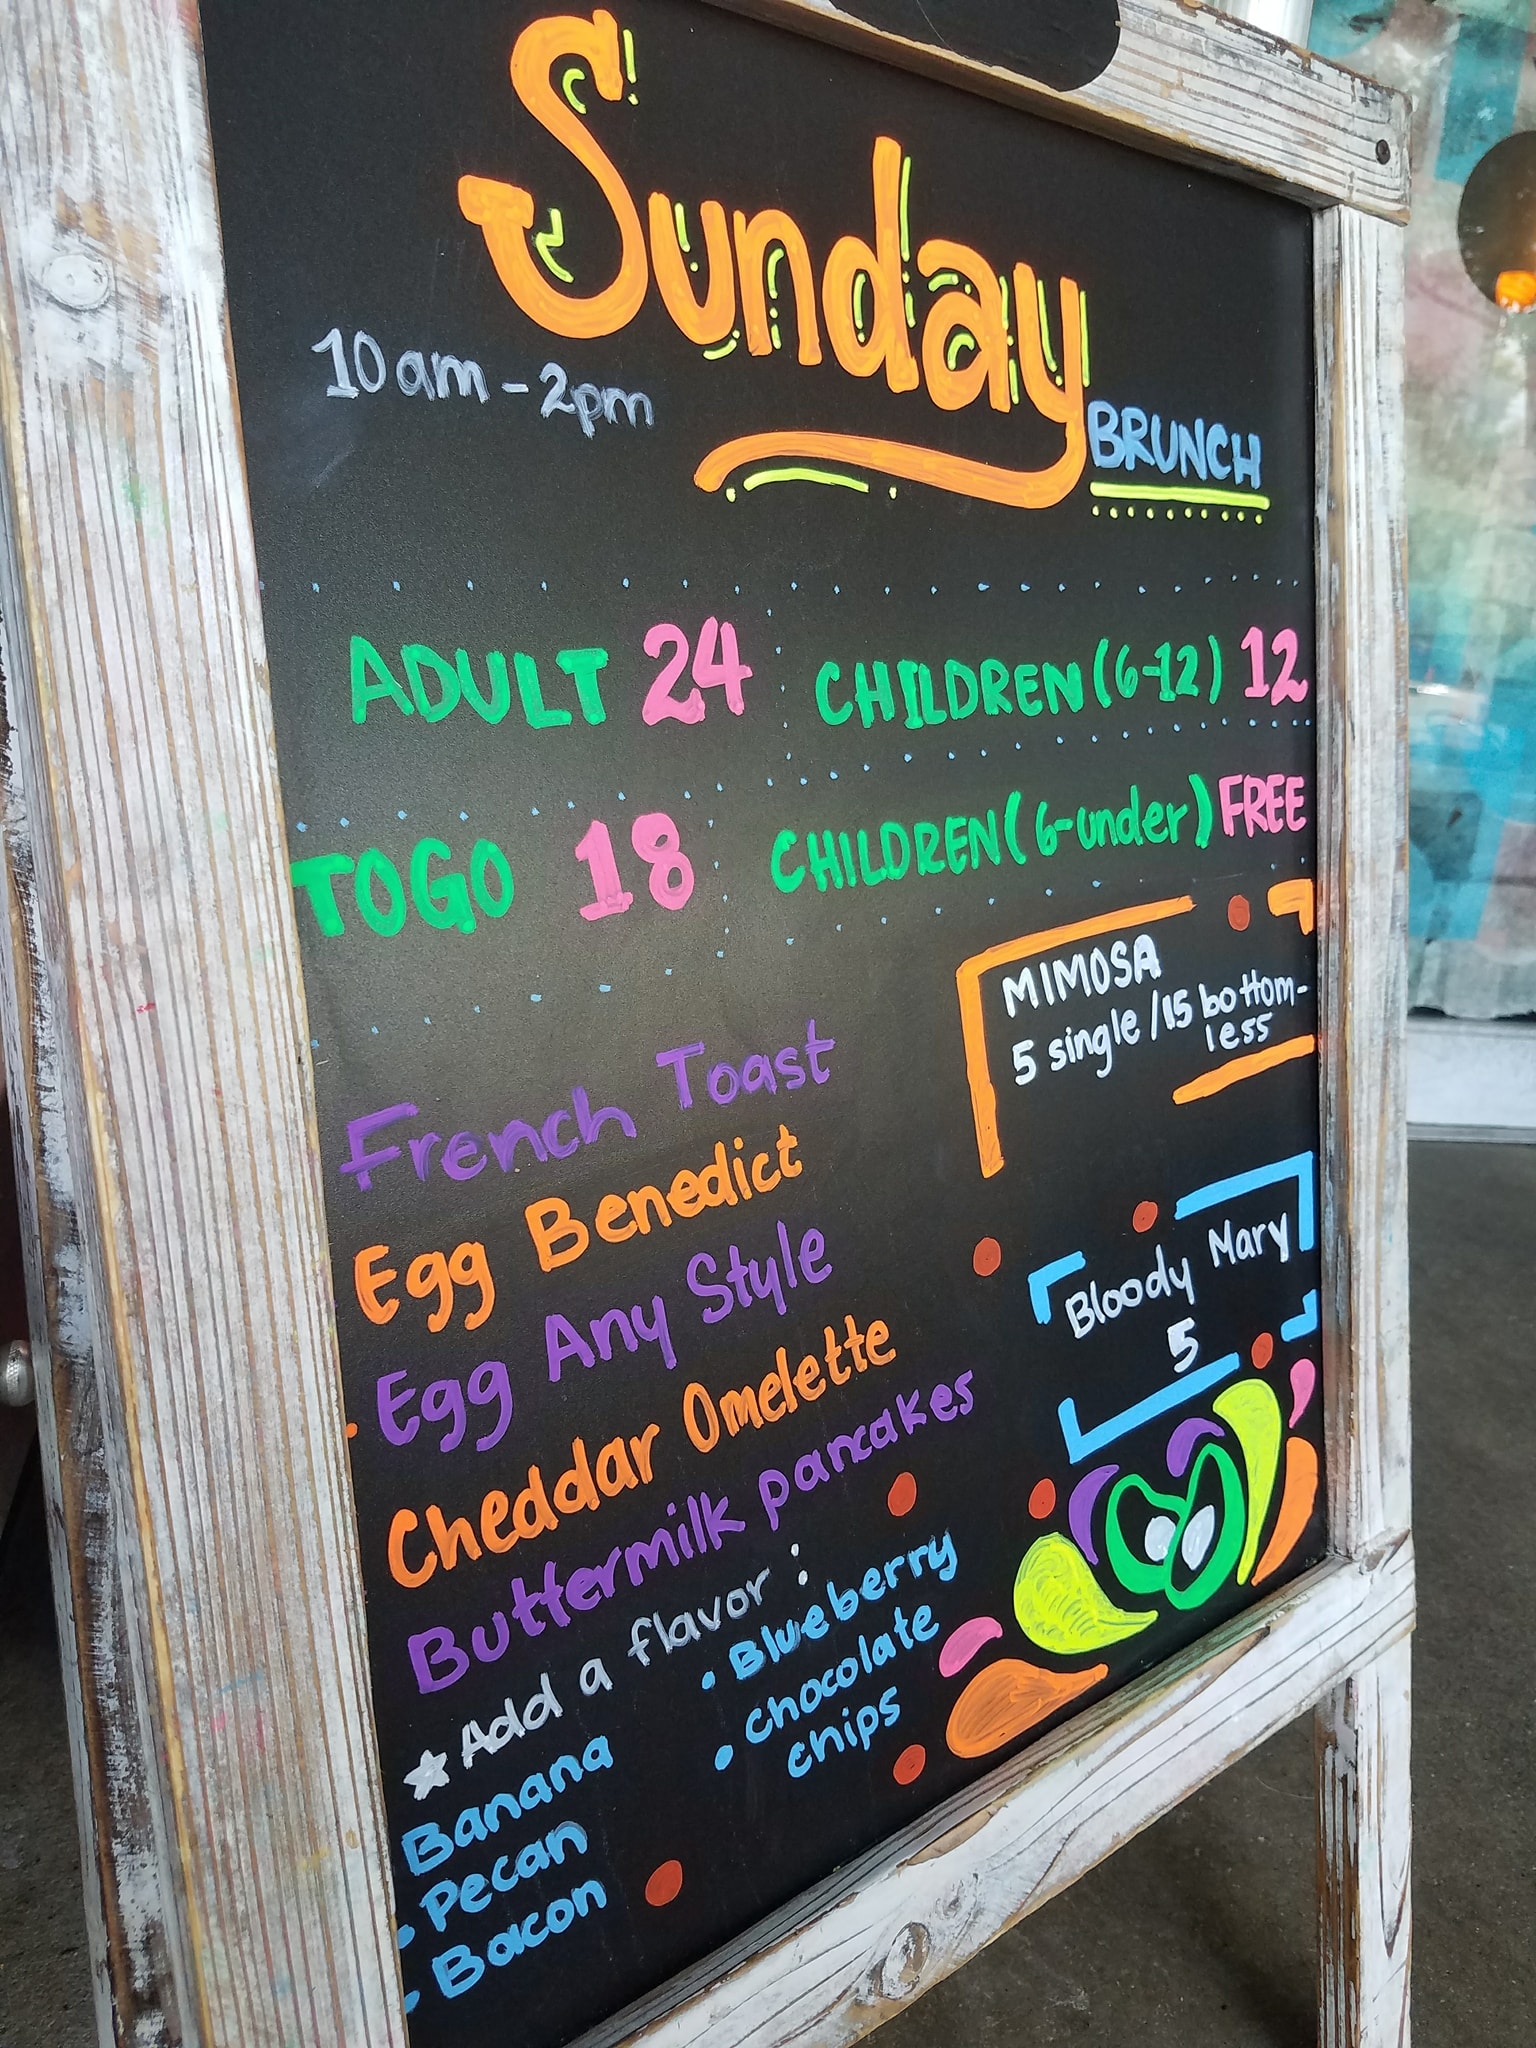 Sunday
BRUNCH
10am - 2pm
ADULT 24
CHILDREN (6-12) 12
TOGO 18
CHILDREN (6-under) FREE
MIMOSA
5 single / 15 bottom-
less
French Toast
Egg Benedict
Egg Any Style
Cheddar Omelette
Buttermilk pancakes
Bloody Mary
5
★ Add a flavor :
Banana
• Pecan
• Bacon
• Blueberry
• chocolate
chips